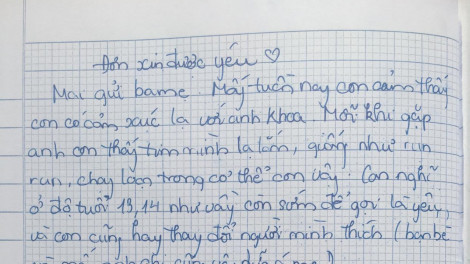 Đơn xin được yêu ♡
Mai gửi bamẹ. Mấy tuần nay con cảm thấy
con có cảm xúc lạ với anh khoa. Mỗi khi gặp
anh con thấy tim mình lạ lắm, giống như run
run, chạy loạn trong cơ thể con vậy. Con nghĩ
ở độ tuổi 13, 14 như vậy con sớm để gọi là yêu,
và con cũng hay thay đổi người mình thích (bạn bè